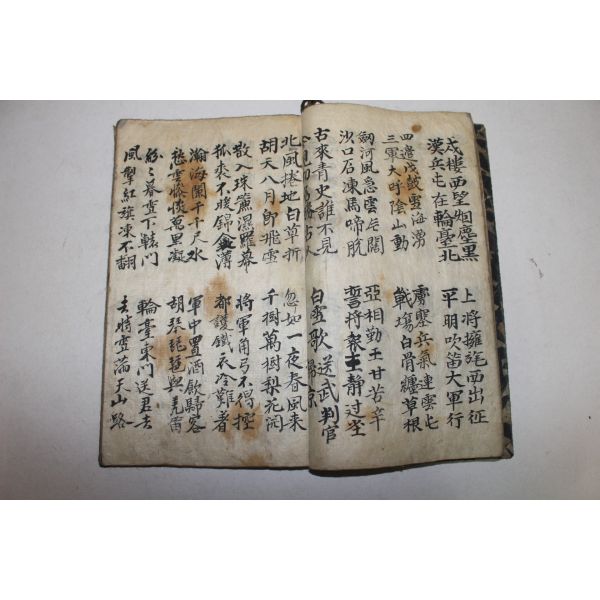 戍樓西望烟塵黑
漢兵屯在輪臺北
上將擁旄西出征
平明吹笛大軍行
四邊伐鼓雪海湧
三軍大呼陰山動
虜塞兵氣連雲屯
戰塲白骨纏草根
劒河風急雲片闊
沙口石凍馬蹄脫
亞相勤王甘苦辛
誓將報主靜边塵
古來青史誰不見
今見功名勝古人
白雪歌 送武判官歸京
北風捲地白草折
胡天八月即飛雪
忽如一夜春風來
千樹萬樹梨花開
散入珠簾濕羅幕
狐裘不暖錦衾薄
將軍角弓不得控
都護鐵衣冷難著
瀚海闌干千尺水
愁雲慘憺萬里凝
軍中置酒飲歸客
胡琴琵琶與羌笛
紛々暮雪下轅門
風掣紅旗凍不翻
輪臺東門送君去
去時雪滿天山路